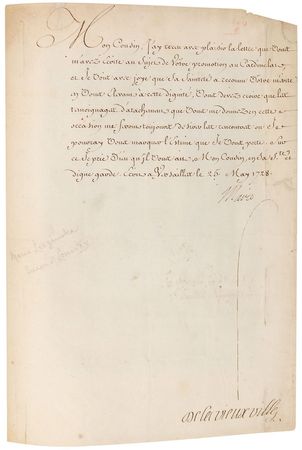 Mon Cousin, j'ay receu avec plaisir la lettre que Vous
m'avez écrite au sujet de Vôtre promotion au Cardinalat,
et je Vous avec joye que Sa Sainteté a reconnu Vôtre mérite
en Vous élevant a cette dignité. Vous devez croire que les
témoignages d'attachement que Vous me donnez en cette
occasion me seront toujours et les ou Je
pourray Vous marquer l'Estime que Je Vous porte. Sur
ce Je prie Dieu qu'il Vous ait, Mon Cousin, en sa Ste et
digne garde. Ecrit a Versailles le 25 May 1728.
Marie
De la vieuxville